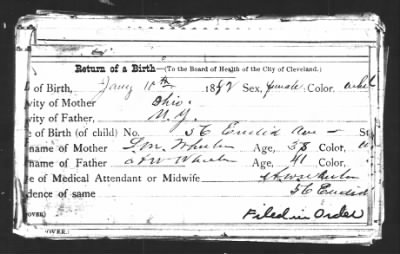 Return of a Birth—(To the Board of Health of the City of Cleveland.)
of Birth, Jany 10th 18 Sex, female Color.
ivity of Mother Ohio
ivity of Father, N.Y.
e of Birth (of child) No. 56 Euclid Ave — St
name of Mother L.M. Wheeler Age, 38 Color,
name of Father Age, 41 Color,
e of Medical Attendant or Midwife
dence of same 56 Euclid
OVER) Filed in Order
(OVER.)